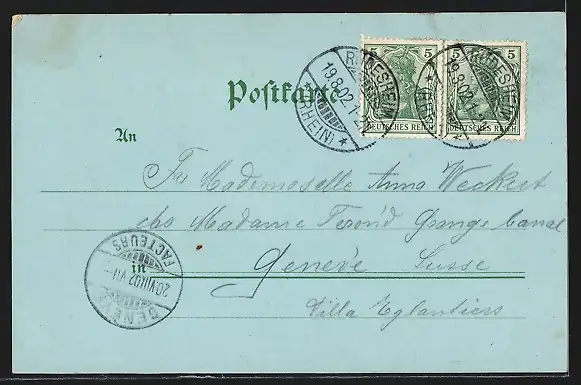 5 5 5 5
DEUTSCHES REICH DEUTSCHES REICH
RÜDESHEIM
19.8.02.1-2
* (RHEIN) *
RÜDESHEIM
19.8.02.1-2
Postkarte
An
Mademoselle Anna Weckert
chs Madame Grange Canal
in
Genève Suisse
Villa Eglantiers
GENÈVE
20.VIII.02 VII
FACTEURS